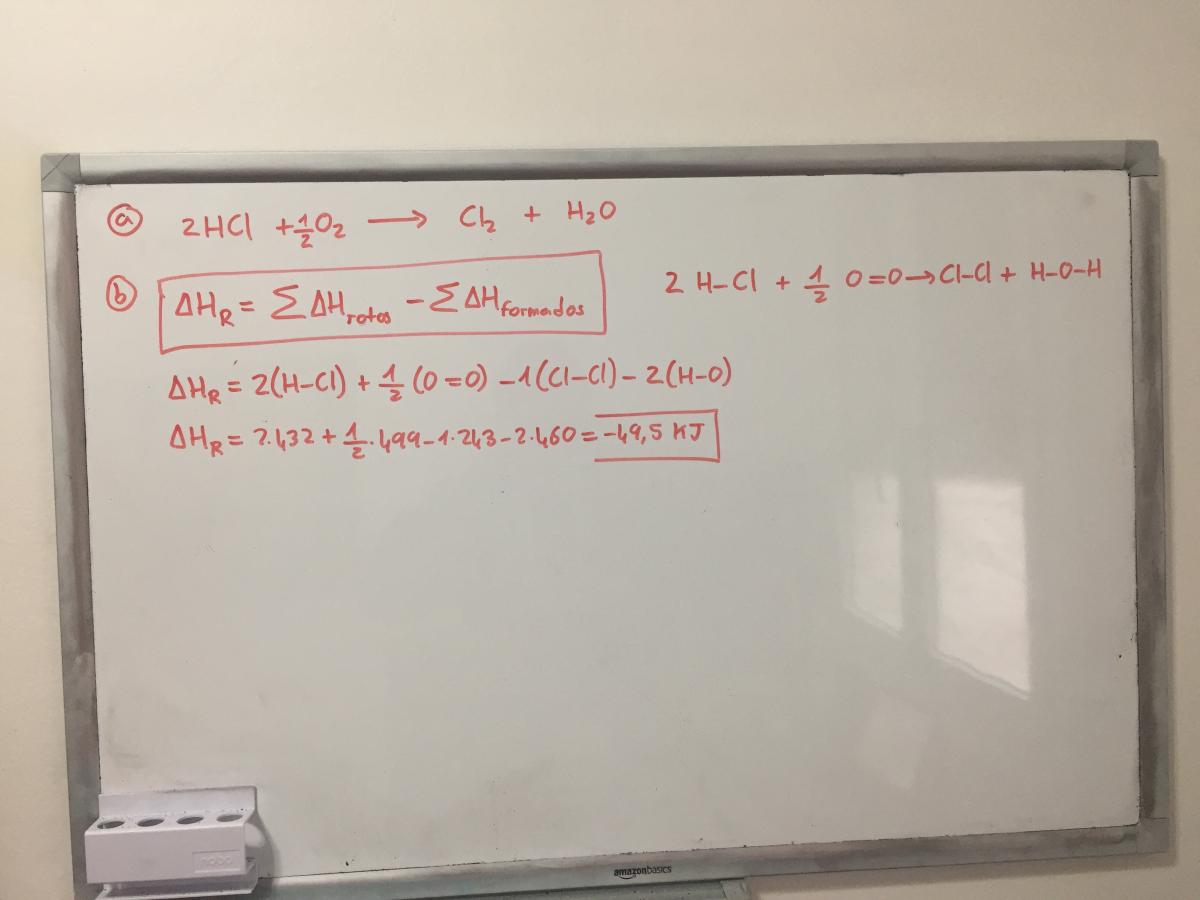 ⓐ 2HCl + 1/2 O₂ ⟶ Cl₂ + H₂O
ⓑ ΔH_R = ∑ ΔH_rotos − ∑ ΔH_formados
2 H–Cl + 1/2 O=O → Cl–Cl + H–O–H
ΔH_R = 2(H–Cl) + 1/2 (O=O) − 1(Cl–Cl) − 2(H–O)
ΔH_R = 2·432 + 1/2·499 − 1·243 − 2·460 = −49,5 KJ
nobo
amazonbasics